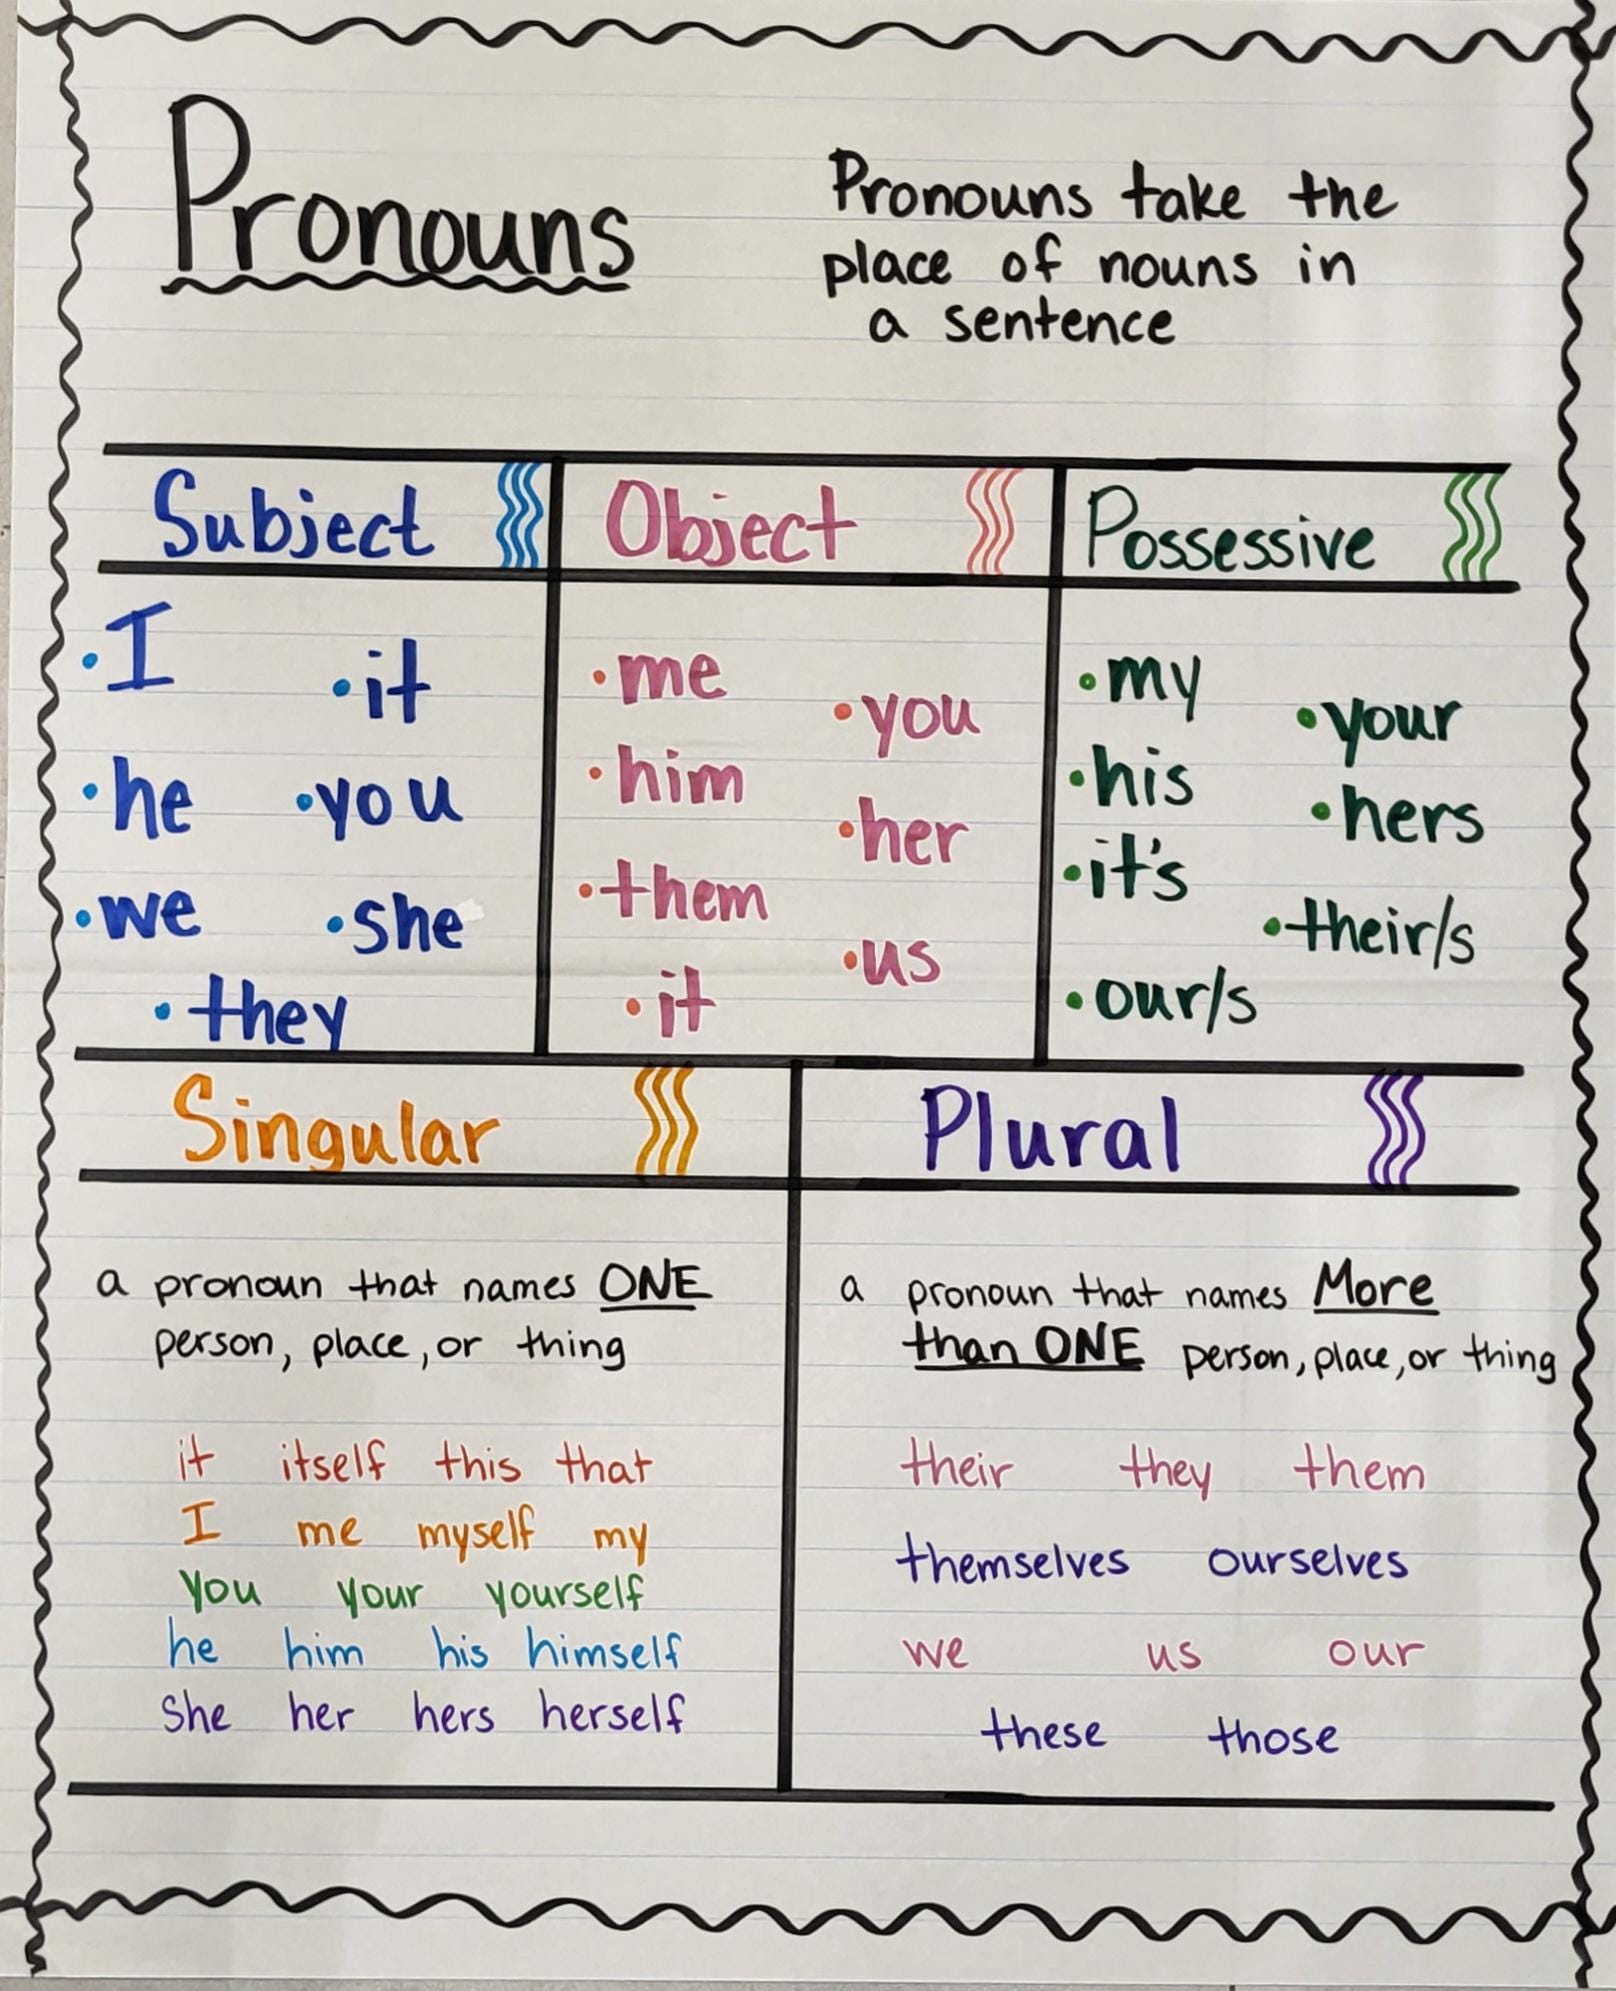 Pronouns
Pronouns take the
place of nouns in
a sentence
Subject
I
it
he
you
we
she
they
Object
me
you
him
her
them
us
it
Possessive
my
your
his
hers
it's
their/s
our/s
Singular
a pronoun that names ONE
person, place, or thing
it itself this that
I me myself my
you your yourself
he him his himself
she her hers herself
Plural
a pronoun that names More
than ONE person, place, or thing
their they them
themselves ourselves
we us our
these those